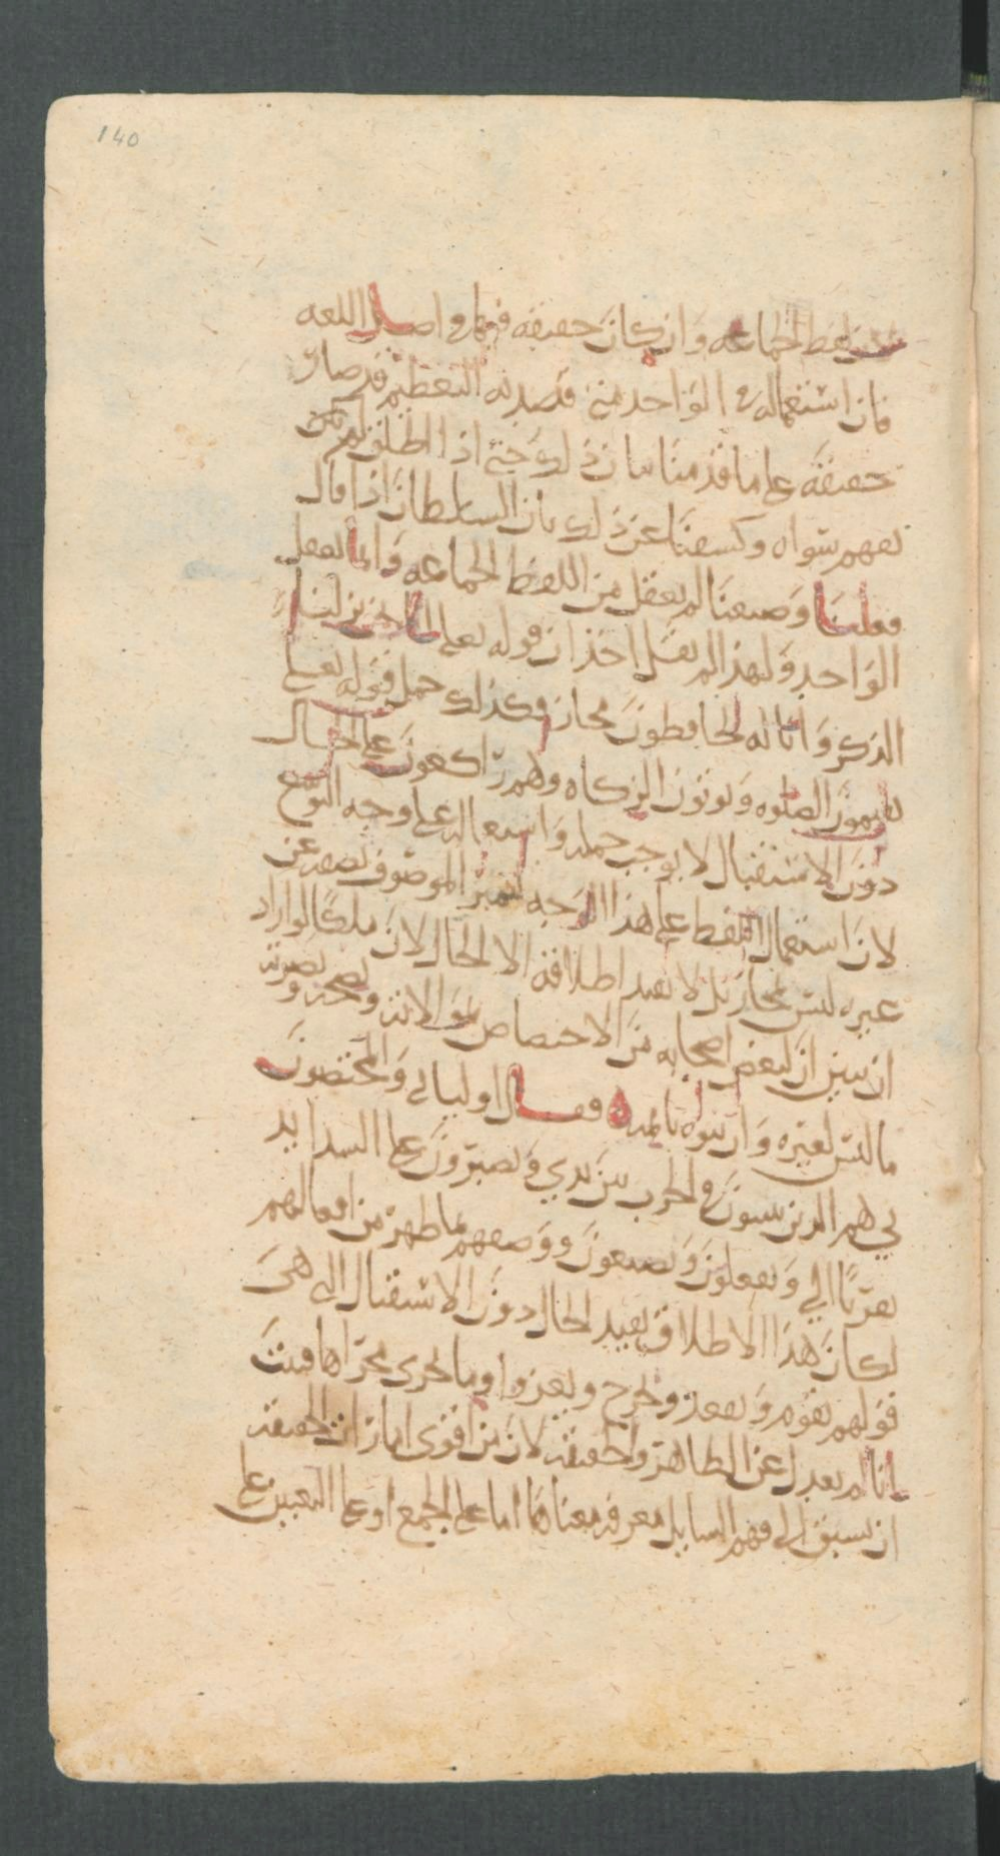 140
لفظ الجماعه وان كان حقيقه في اصل اللغه
فان استعماله في الواحد متى قصد به التعظيم قد صار
حقيقة على ما قدمنا بيان ذلك حتى اذا اطلق لم يكن
يفهم سواه وكشفنا عن ذلك بان السلطان اذا قال
فعلنا وصنعنا لم يعقل من اللفظ الجماعه وانما يعقل
الواحد ولهذا لم يقل احد ان قوله تعلى انا نحن نزلنا
الذكر وانا له لحافظون مجاز فكذلك حمل قوله تعلى
يقيمون الصلوه ويوتون الزكاه وهم راكعون على الحال
دون الاستقبال لا يوجب حمله واستعماله على وجه التوسع
لان استعمال اللفظ على هذا الوجه لتميز الموصوف بصفه عن
غيره ليس بمجاز بل لا يفيد اطلاقه الا الحال لان ملكا لو اراد
ان يبين ان لبعض اصحابه من الاختصاص بولايته و
ما ليس لغيره وان ينوه باسمه فقال اوليائي والمختصون
بي هم الذين في الحرب بين يدي ويصبرون على الشدايد
تقربا الي ويفعلون ويصنعون ووصفهم بما ظهر من افعالهم
لكان هذا الاطلاق يفيد الحال دون الاستقبال الى هي
قولهم يقوم ويقعد ويخرج ويغزوا وما جرى مجراها فثبت
انا لم نعدل عن الظاهر والحقيقة لان من اقوى امارات الحقيقة
ان يسبق الى فهم السايل معرفة معناها اما على الجمع او على التعيين على